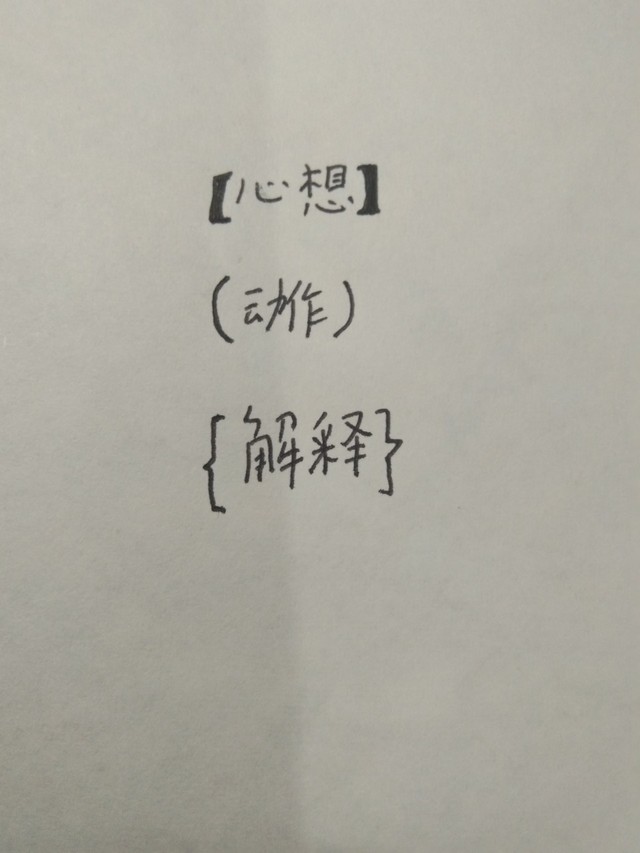 【心想】
(动作)
{解释}